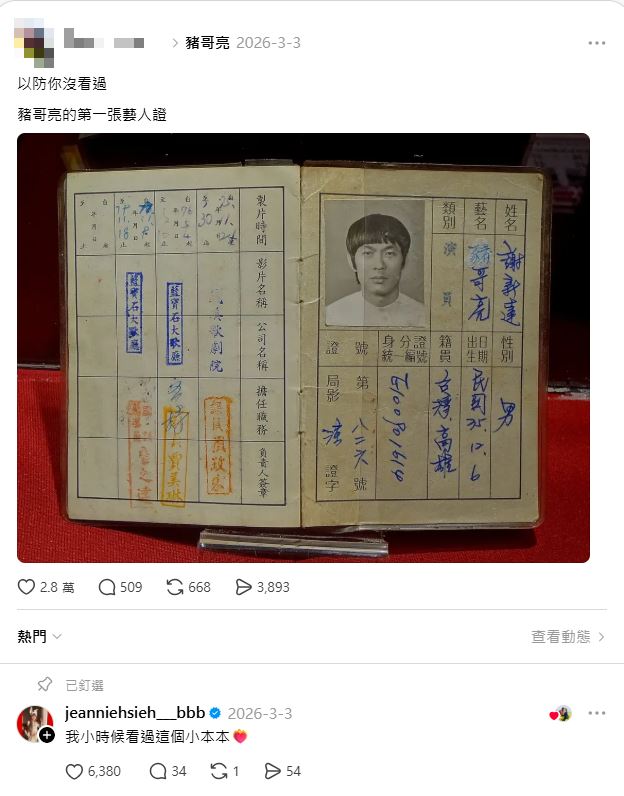 豬哥亮 2026-3-3
以防你沒看過
豬哥亮的第一張藝人證
姓名
謝新達
性別
男
藝名
豬哥亮
出生日期
民國35.12.6
類別
演員
籍貫
台灣高雄
身分證統編號
證號
局影
證字
第八二六號
製片時間
影片名稱
公司名稱
擔任職務
負責人簽章
歌劇院
藍寶石大歌廳
藍寶石大歌廳
2.8 萬
509
668
3,893
熱門
查看動態
已釘選
jeanniehsieh___bbb 2026-3-3
我小時候看過這個小本本
6,380
34
1
54